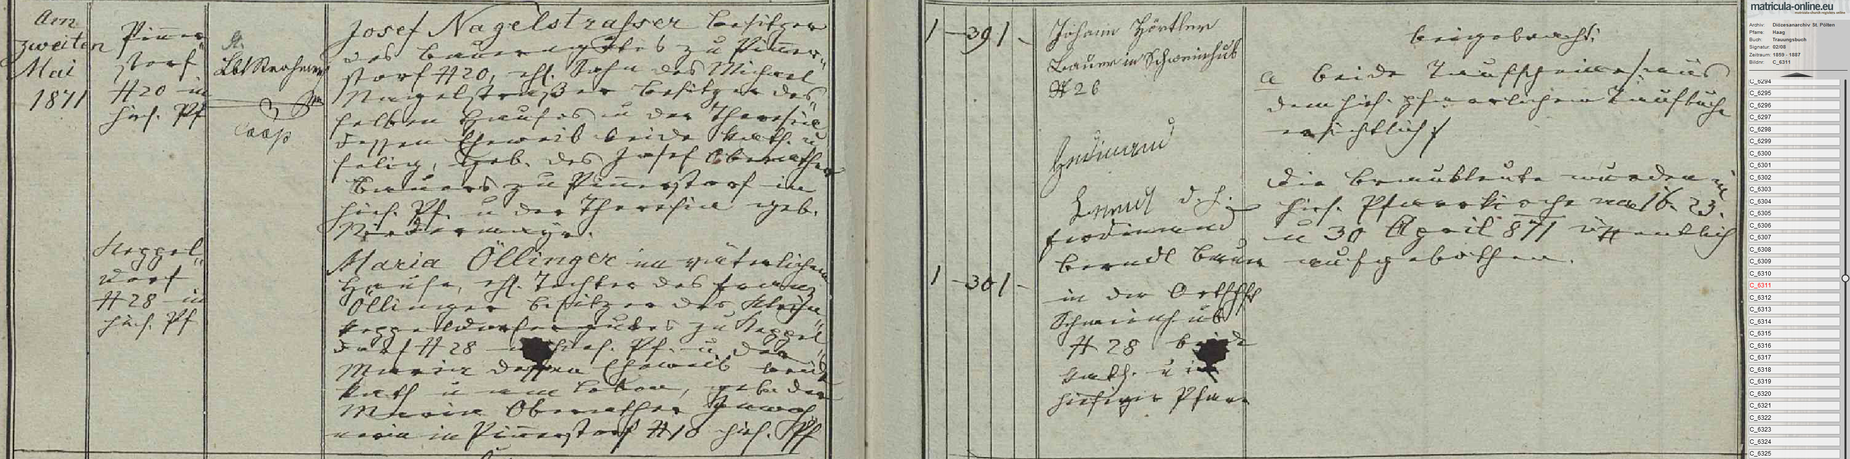 Am
zweiten
Mai
1871
Pinner-
storf
#20 in
hies. Pf
Josef Nagelstrasser Besitzer
des Bauerngutes zu Pinner-
storf #20, ehl. Sohn des Michael
Nagelstraßer Besitzer des-
selben Hauses u der Theresia
dessen Eheweib beide kath. u
selig, geb. des Josef
Bauers zu Pinnerstorf in
hies. Pf. u der Theresia geb.
Heppel-
dorf
#28 in
hies. Pf
Maria Öllinger im väterlichen
Hause, ehl. Tochter des Franz
Öllinger Besitzer des
gutes zu Heppel-
dorf #28 hies. Pf. u der
Maria dessen Eheweib beide
kath u am Leben, geb. der
Maria Oberather
in Pinnerstorf #18 hies. Pf
1 - 39 1 -
1 - 30 1 -
Johann Hörtler
Bauer in Schweinhub
#26
Ferdinand
d. h.
Ferdinand
Berndl Bauer
in der Ortschft
Schweinhub
#28 beide
kath. u in
hiesiger Pfarr
beigebracht:
a beide Taufscheine aus
dem hies. pfarrlichen Taufbuche
ersichtlich
Die Brautleute wurden in
hies. Pfarrkirche am 16. 23.
u 30 April 871 öffentlich
aufgebothen.
matricula-online.eu
Archiv: Diözesanarchiv St. Pölten
Pfarre: Haag
Buch: Trauungsbuch
Signatur: 02/08
Zeitraum: 1859 - 1887
Bildnr. C_6311
C_6294
C_6295
C_6296
C_6297
C_6298
C_6299
C_6300
C_6301
C_6302
C_6303
C_6304
C_6305
C_6306
C_6307
C_6308
C_6309
C_6310
C_6311
C_6312
C_6313
C_6314
C_6315
C_6316
C_6317
C_6318
C_6319
C_6320
C_6321
C_6322
C_6323
C_6324
C_6325